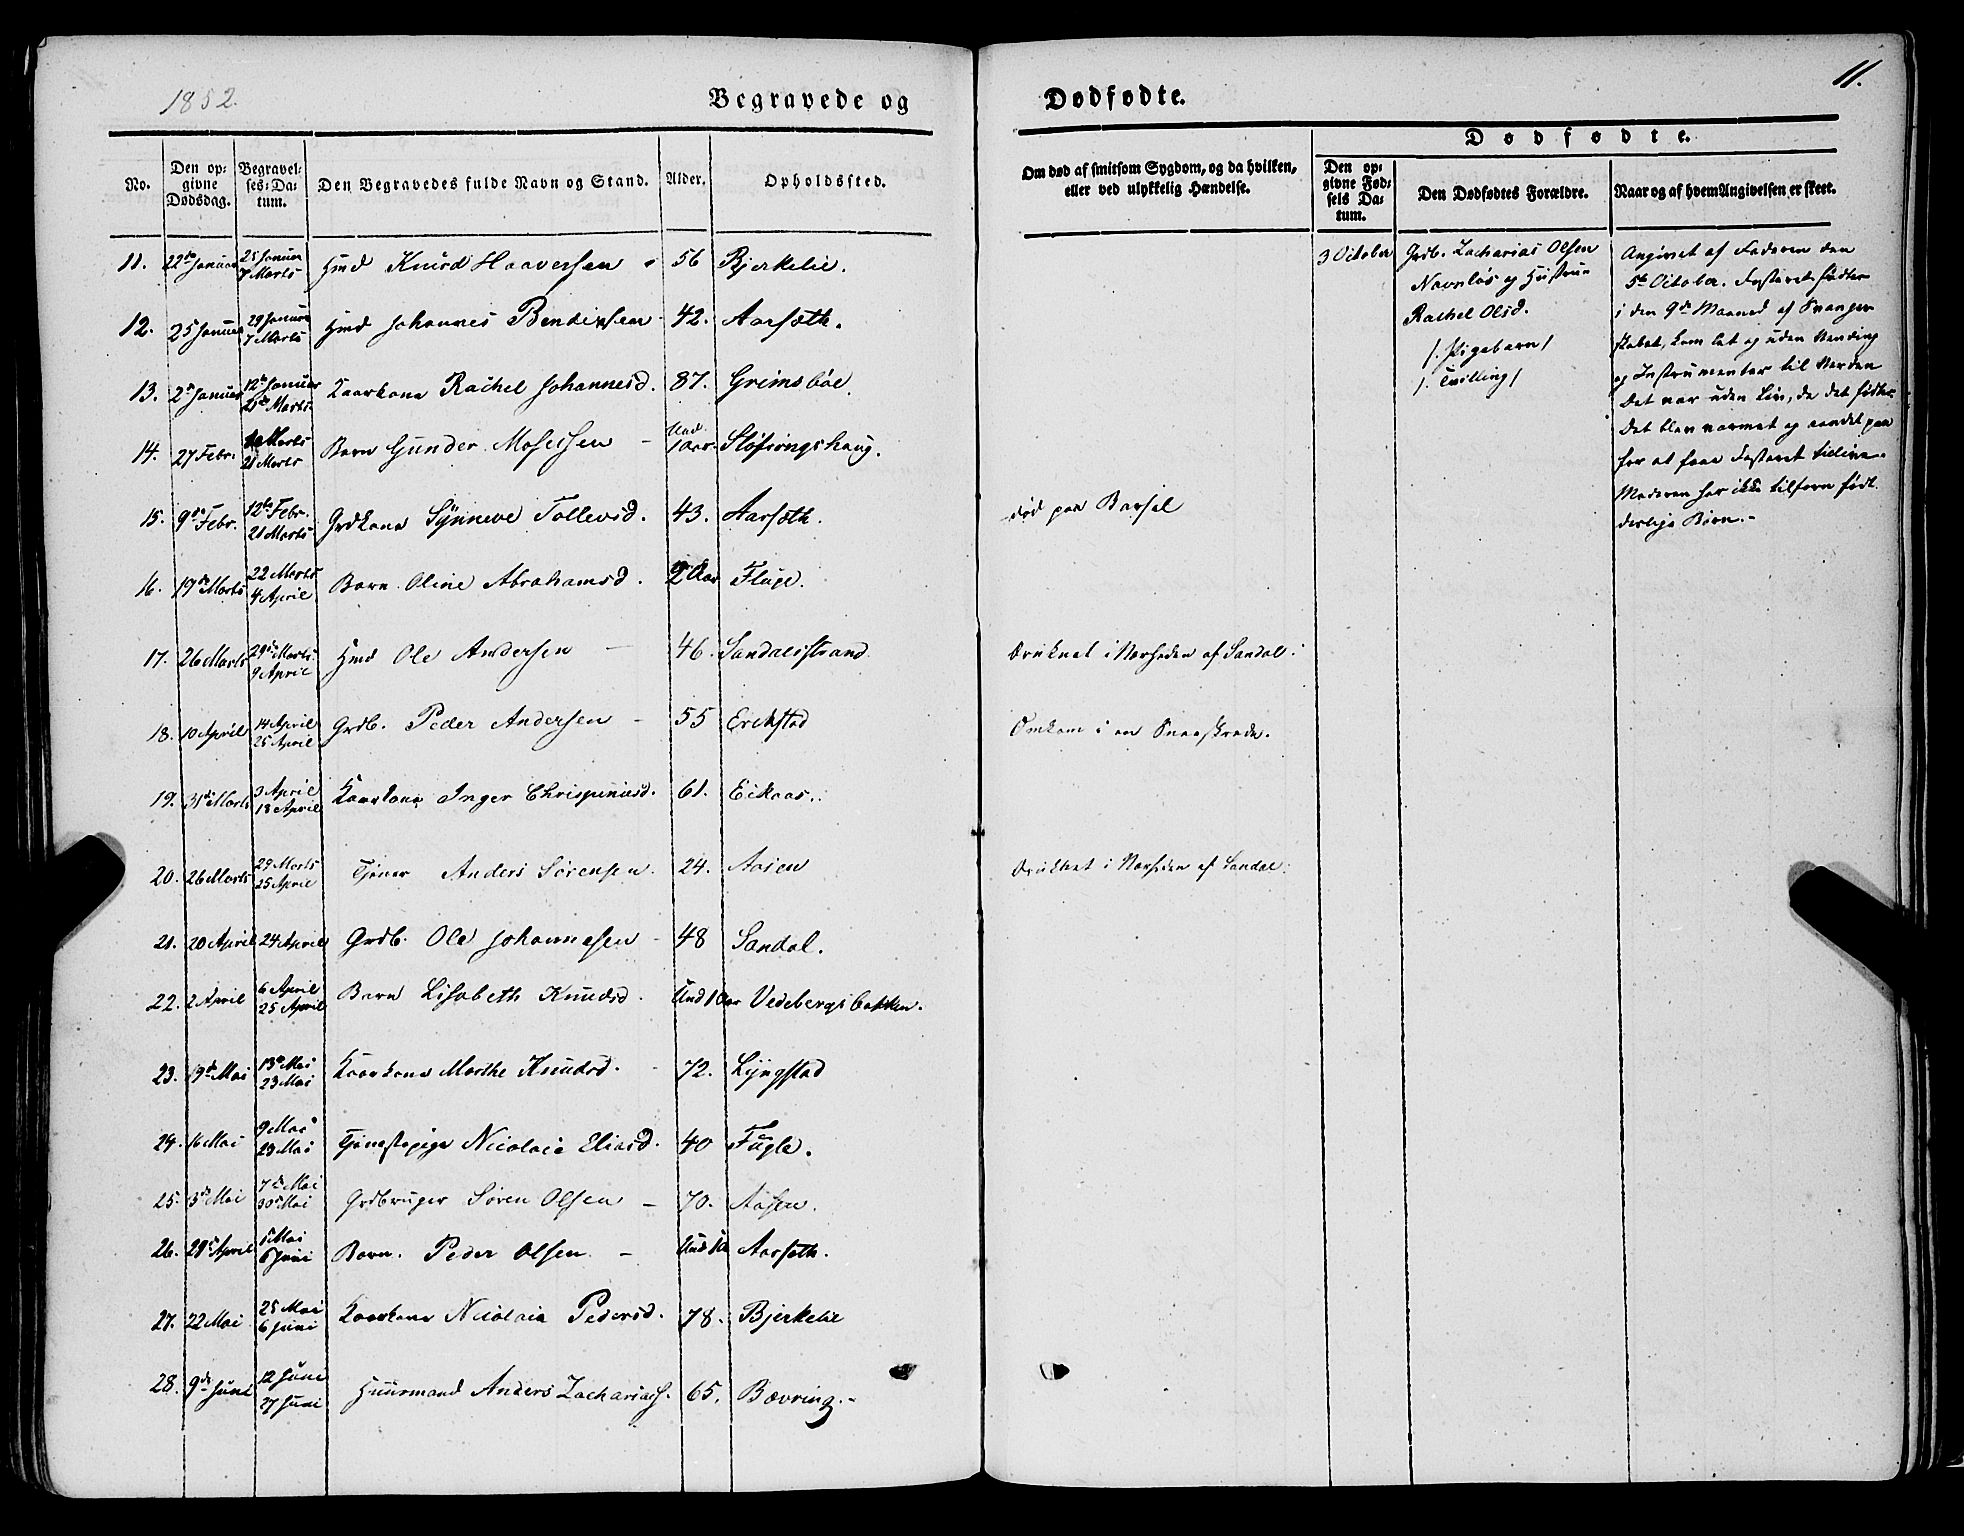 1852.
Begravede og
Dødfødte.
11.
No.
Den op-
givne
Dødsdag.
Begravel-
ses-Da-
tum.
Den Begravedes fulde Navn og Stand.
Alder.
Opholdssted.
Om død af smitsom Sygdom, og da hvilken,
eller ved ulykkelig Hændelse.
Dødfødte.
Den op-
givne Fød-
sels Da-
tum.
Den Dødfødtes Forældre.
Naar og af hvem Angivelsen er skeet.
11. 22de Januar 25 Januar 7 Marts Hmd Knud Haaversen 56 Bjerkelie.
12. 25 Januar 29 Januar 7 Marts Hmd Johannes Bendixsen 42. Aarsæth.
13. 2den Januar 12te Januar 21de Marts Kaarkone Rachel Johannesd. 87. Grimsbøe.
14. 27 Febr. Marts 21 Marts Barn Gunder Mosessen Und. 1 aar
15. 9de Febr. 12te Febr. 21 Marts Grdkone Synneve Tollevsd. 43. Aarsæth. død paa Barsel
16. 19de Marts 22 Marts 4 April Barn Oline Abrahamsd. 2 Aar Fluge.
17. 26 Marts 29de Marts 9 April Hmd Ole Andersen 46. Sandalsstrand Druknet i Nærheden af Sandal.
18. 10 April 14 April 25 April Grdb. Peder Andersen 55 Erikstad Omkom i en Sneeskrede.
19. 31de Marts 3 April 18 April Kaarkone Inger Chrispinusd. 61. Eikaas.
20. 26 Marts 29 Marts 25 April Tjener Anders Sørensen. 24. Aasen Druknet i Nærheden af Sandal.
21. 20 April 24 April Grdb. Ole Johannesen 48 Sandal.
22. 2 April 6 April 25 April Barn Lisabeth Knudsd. Und 1 Aar Vedebergsbakken.
23. 19de Mai 13de Mai 23 Mai Kaarkone Marthe Knudsd. 72. Lyngstad
24. 16 Mai 9 Mai 23 Mai Tjenestepige Nicolaia Eliasd. 40 Fugle.
25. 3de Mai 7de Mai 30 Mai Grdbruger Søren Olsen 70. Aasen.
26. 28de April 5 Mai 6 Juni Barn. Peder Olsen. Und 1 Aarsæth.
27. 22 Mai 25 Mai 6 Juni Kaarkone Nicolaia Pedersd. 78. Bjerkelie
28. 9de Juni 12 Juni 27 Juni Huusmand Anders Zachariass. 65. Bævring.
3 October
Grdb. Zacharias Olsen
Navnløs og Hustrue
Rachel Olsd.
/: Pigebarn /
/: Tvilling /
Angivet af Faderen den
5te October. Fosteret fødtes
i den 9de Maaned af Svanger-
skabet, kom let og uden Vending
og Instrumenter til Verden
Det var uden Liv, da det fødtes
Det blev varmet og aandet paa
for at faae Fosteret tillive.
Moderen har ikke tilforn født
deslige Børn.